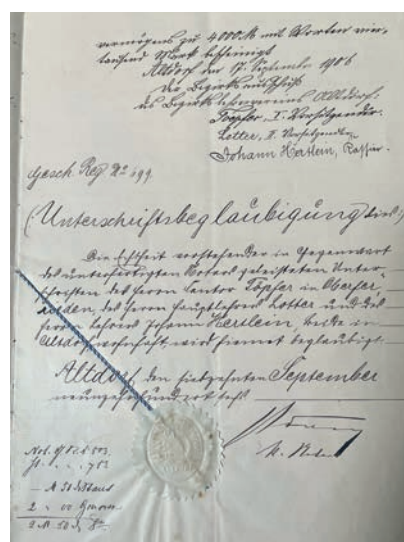 vermögens zu 4000 M mit Worten vier-
tausend Mark bescheinigt
Altdorf den 17. September 1906
Der Bezirksausschuß
des Bezirkslehrervereins Altdorf.
Töpfer, I. Vorsitzender.
Lotter, II. Vorsitzender
Johann Hertlein, Kassier.
Gesch. Reg. No 599
(Unterschriftsbeglaubigung
Die Echtheit vorstehender in Gegenwart
des unterfertigten Notars geleisteten Unter-
schriften des Herrn Cantor Töpfer in Oberfer-
rieden, des Herrn Hauptlehrers Lotter und des
Herrn Lehrers Johann Hertlein, beide in
Altdorf wohnhaft, wird hiemit beglaubigt.
Altdorf, den siebzehnten September
neunzehnhundert sechs